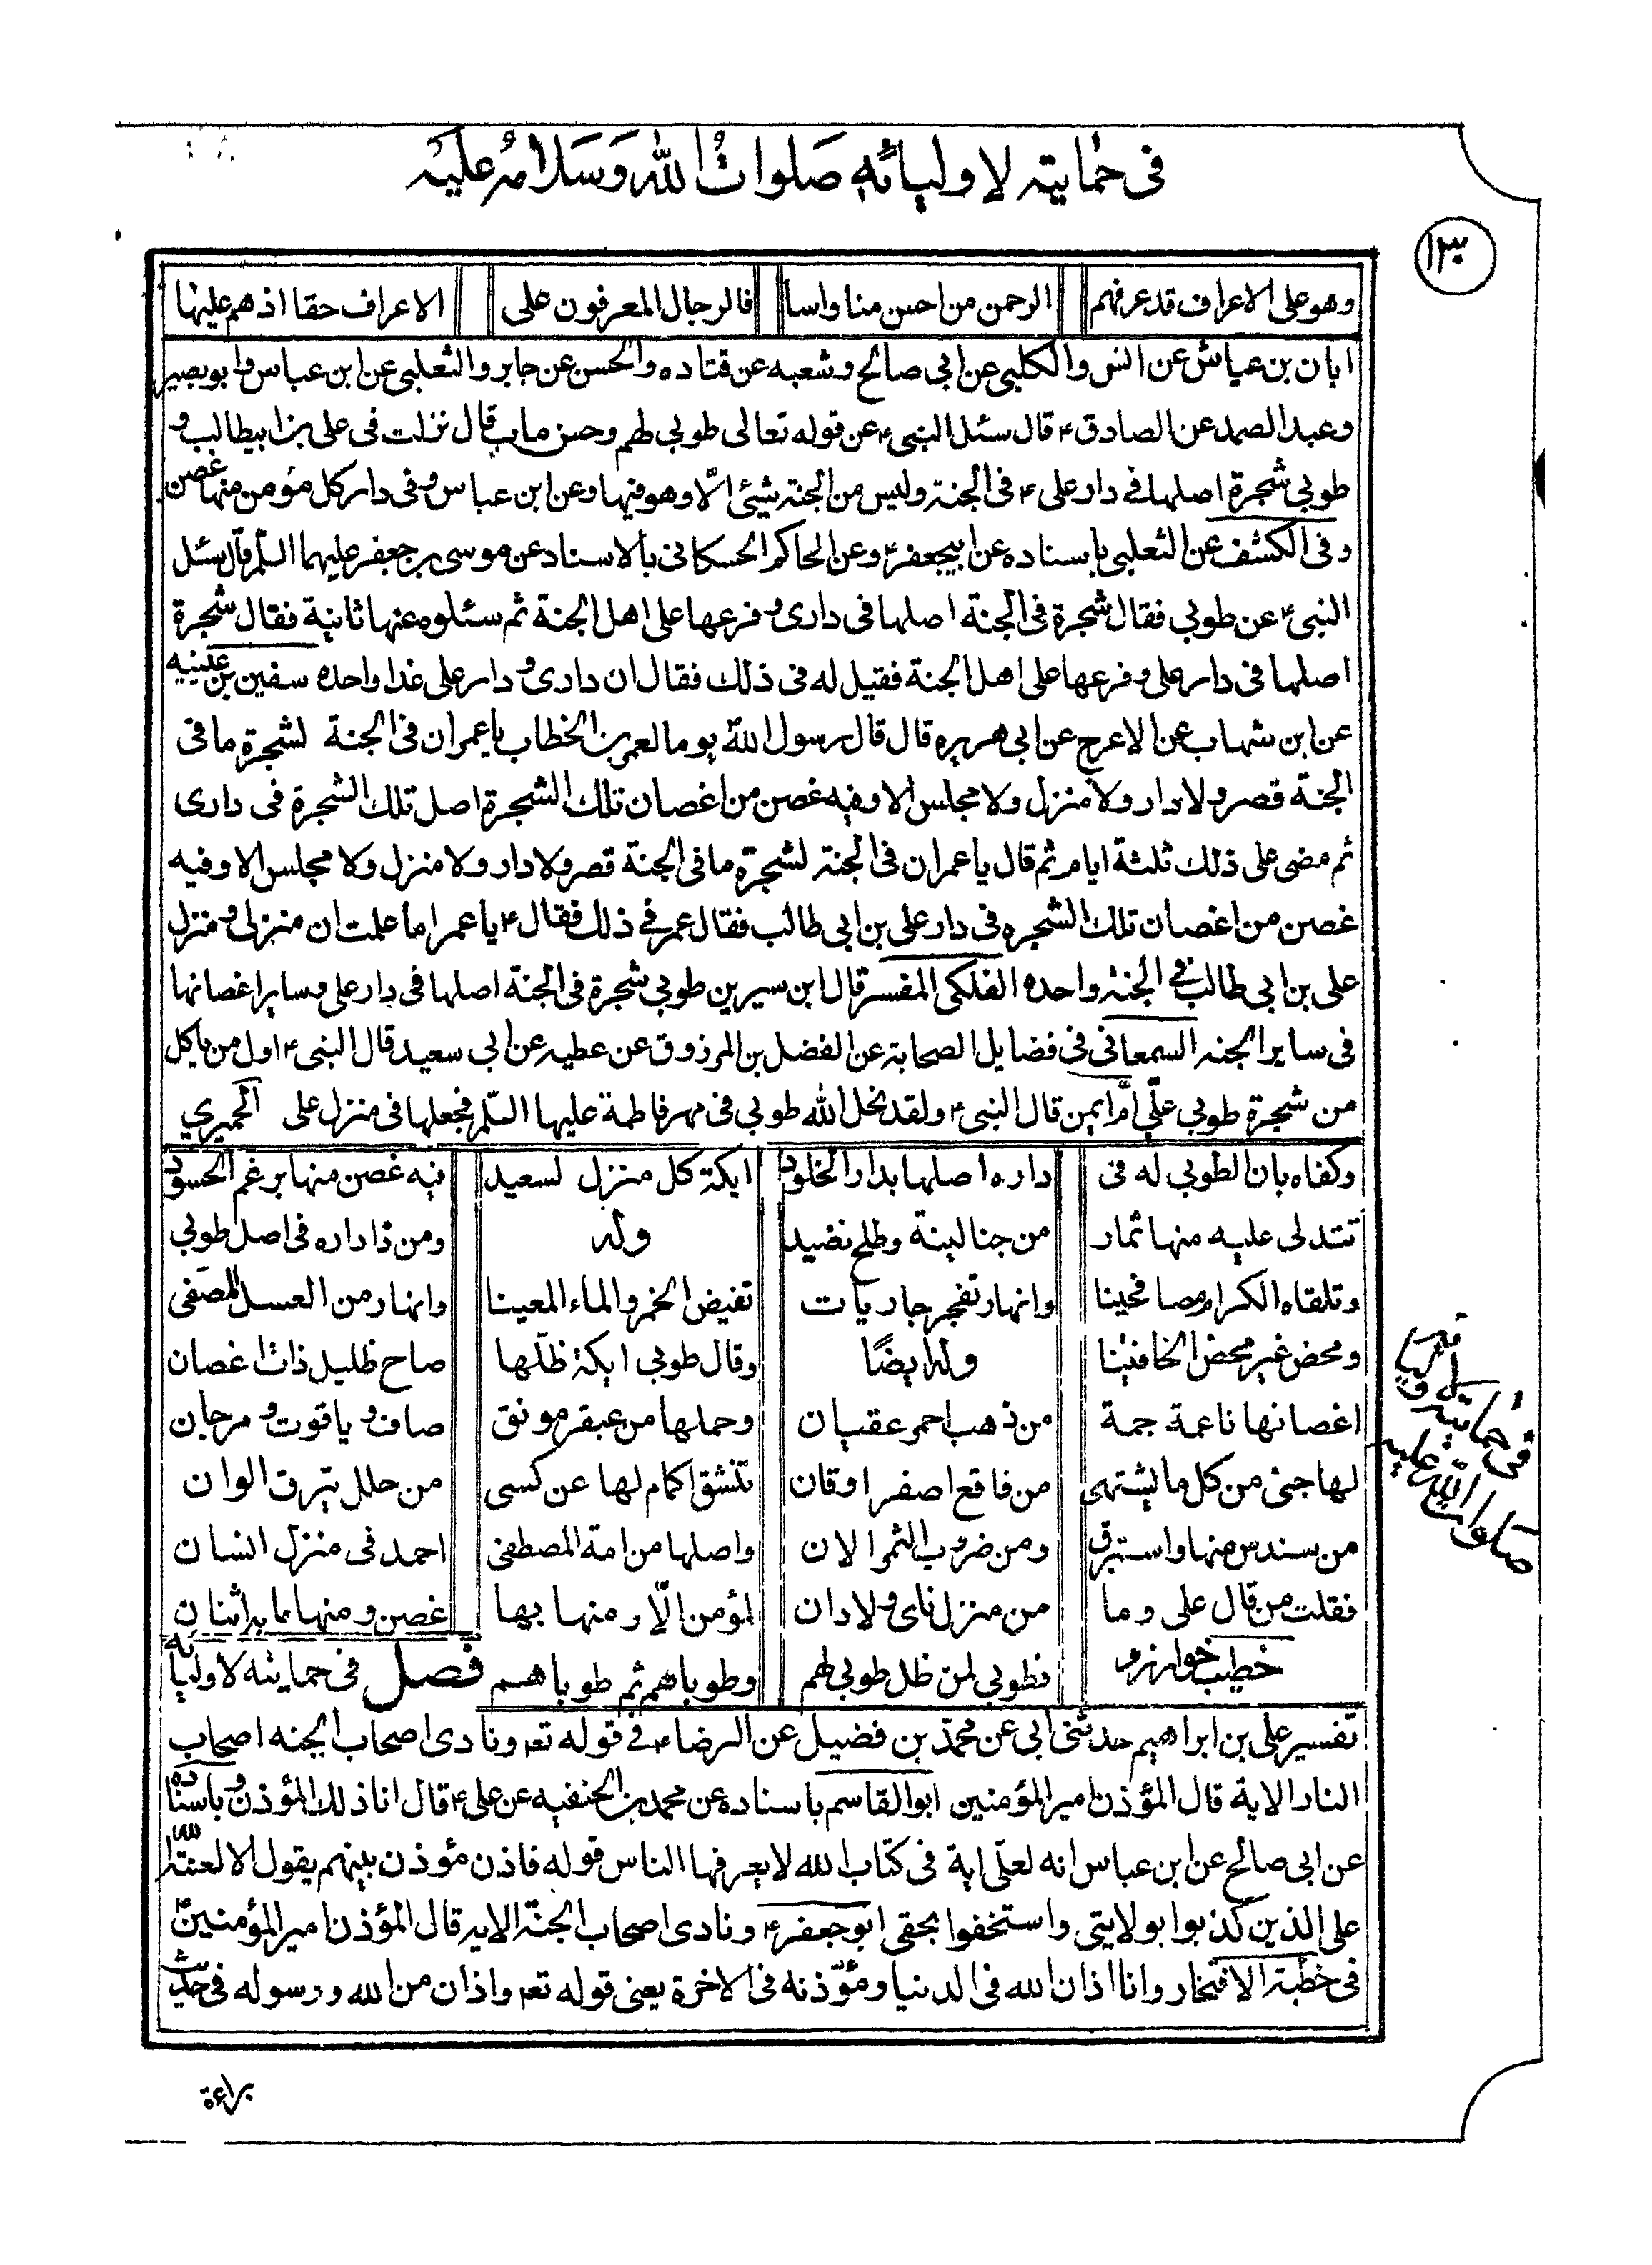 فى حمايته لاوليائه صلوات الله وسلامه عليه
١٣٠
وهو على الاعراف قد عرفهم الرحمن من احسن منا واسا فالرجال المعرفون على الاعراف حقا اذ هم عليها
ابان بن عياش عن انس والكلبى عن ابى صالح وشعبه عن قتاده والحسن عن جابر والثعلبى عن ابن عباس وابو بصير
وعبد الصمد عن الصادق ع قال سئل النبى ع عن قوله تعالى طوبى لهم وحسن ماب قال نزلت فى على بن ابيطالب و
طوبى شجرة اصلها فى دار على ع فى الجنة وليس من الجنة شيئ الّا وهو فيها وعن ابن عباس و فى دار كل مؤمن منها غصن
وفى الكشف عن الثعلبى باسناده عن ابيجعفر ع وعن الحاكم الحسكانى بالاسناد عن موسى بن جعفر عليهما السلم قال سئل
النبى ع عن طوبى فقال شجرة فى الجنة اصلها فى دارى و فرعها على اهل الجنة ثم سئلوه عنها ثانية فقال شجرة
اصلها فى دار على و فرعها على اهل الجنة فقيل له فى ذلك فقال ان دارى و دار على غدا واحده سفين بن عيينيه
عن ابن شهاب عن الاعرج عن ابى هريره قال قال رسول الله يوما لعمر بن الخطاب يا عمر ان فى الجنة لشجرة ما فى
الجنة قصر و لا دار ولا منزل ولا مجلس الا وفيه غصن من اغصان تلك الشجرة اصل تلك الشجرة فى دارى
ثم مضى على ذلك ثلثة ايام ثم قال يا عمر ان فى الجنة لشجرة ما فى الجنة قصر ولا دار ولا منزل ولا مجلس الا وفيه
غصن من اغصان تلك الشجره فى دار على بن ابى طالب فقال عمر فى ذلك فقال ع يا عمر اما علمت ان منزلى و منزل
على بن ابى طالب فى الجنة واحده الفلكى المفسر قال ابن سيرين طوبى شجرة فى الجنة اصلها فى دار على وساير اغصانها
فى ساير الجنه السمعانى فى فضايل الصحابة عن الفضل بن المرذوق عن عطيه عن ابى سعيد قال النبى ع اول من ياكل
من شجرة طوبى علىّ امّ ايمن قال النبى ع ولقد نحل الله طوبى فى مهر فاطمة عليها السلم فجعلها فى منزل على الحميري
وكفاه بان الطوبى له فى داره اصلها بدار الخلود ايكة كل منزل لسعيد فيه غصن منها برغم الحسود
تتدلى عليه منها ثمار من جنا لينة وطلح نضيد وله ومن ذا داره فى اصل طوبى
وتلقاه الكرام مصافحينا وانهار تفجر جاريات تفيض الخمر والماء المعينا وانهار من العسل المصفى
ومحض غير محض الخافتينا وله ايضًا وقال طوبى ايكة ظلّها صاح ظليل ذات اغصان
اغصانها ناعمة جمة من ذهب احمر عقيان وحملها من عبقر مونق صاف و ياقوت و مرجان
لها جنى من كل ما يشتهى من فاقع اصفر او قان تنشق اكمام لها عن كسى من حلل تبرق الوان
من سندس منها واستبرق ومن ضروب الثمر الان واصلها من امة المصطفى احمد فى منزل انسان
فقلت من قال على وما من منزل ناى و لا دان لمؤمن الّا ومنها بها غصن ومنها ما بداثنان
خطيب خوارزم فطوبى لمن ظل طوبى لهم وطوباهم ثم طوباهم فصل فى حمايته لاوليائه
تفسير على بن ابراهيم حدثنى ابى عن محمد بن فضيل عن الرضا ع فى قوله تع ونادى اصحاب الجنه اصحاب
النار الاية قال المؤذن امير المؤمنين ابو القاسم باسناده عن محمد بن الحنفيه عن على ع قال انا ذلك المؤذن و باسناده
عن ابى صالح عن ابن عباس انه لعلى اية فى كتاب الله لا يعرفها الناس قوله فاذن مؤذن بينهم يقول الا لعنة الله
على الذين كذبوا بولايتى واستخفوا بحقى ابو جعفر ع ونادى اصحاب الجنّة الايه قال المؤذن امير المؤمنين ع
فى خطبة الافتخار وانا اذان الله فى الدنيا ومؤذنه فى الاخرة يعنى قوله تع واذان من الله ورسوله فى حديث
براءة
فى حمايته
صلوات الله عليه